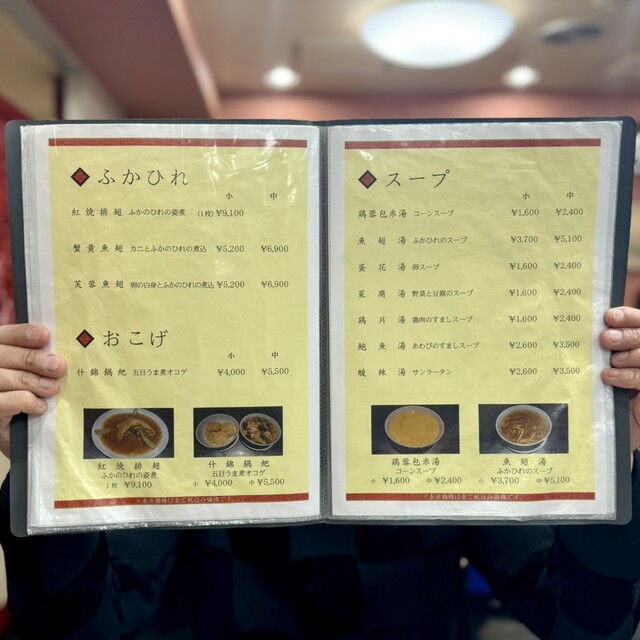 ふかひれ
小 中
紅焼排翅 ふかのひれの姿煮 (1枚) ¥9,100
蟹黄魚翅 カニとふかのひれの煮込 ¥5,200 ¥6,900
芙蓉魚翅 卵の白身とふかのひれの煮込 ¥5,200 ¥6,900
おこげ
小 中
什錦鍋粑 五目うま煮オコゲ ¥4,000 ¥5,500
紅焼排翅
ふかのひれの姿煮
1枚 ¥9,100
什錦鍋粑
五目うま煮オコゲ
小 ¥4,000 中 ¥5,500
※表示価格は全て税込み価格です。
スープ
小 中
鶏蓉包米湯 コーンスープ ¥1,600 ¥2,400
魚翅湯 ふかひれのスープ ¥3,700 ¥5,100
蛋花湯 卵スープ ¥1,600 ¥2,400
菜腐湯 野菜と豆腐のスープ ¥1,600 ¥2,400
鶏片湯 鶏肉のすましスープ ¥1,600 ¥2,400
鮑魚湯 あわびのすましスープ ¥2,600 ¥3,500
酸辣湯 サンラータン ¥2,600 ¥3,500
鶏蓉包米湯
コーンスープ
小 ¥1,600 中 ¥2,400
魚翅湯
ふかひれのスープ
小 ¥3,700 中 ¥5,100
※表示価格は全て税込み価格です。